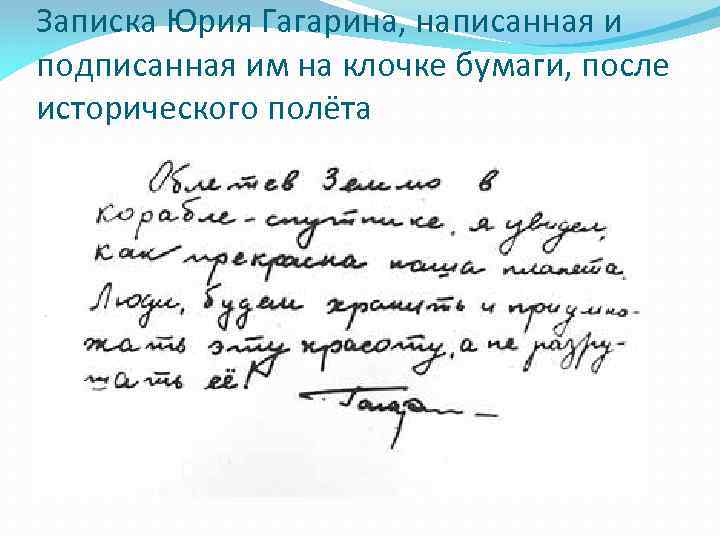 Записка Юрия Гагарина, написанная и
подписанная им на клочке бумаги, после
исторического полёта
Облетев Землю в
корабле-спутнике, я увидел,
как прекрасна наша планета.
Люди, будем хранить и приумно-
жать эту красоту, а не разру-
шать её!
Гагарин